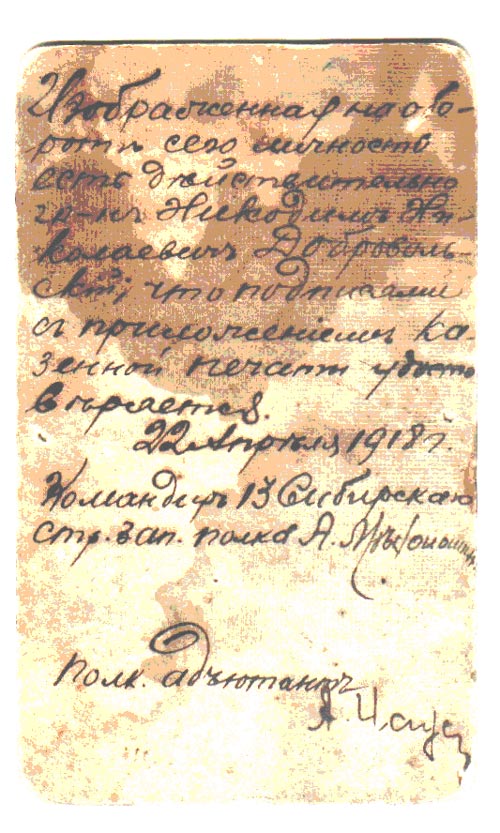 Изображенная на обо-
ротѣ сего личность
есть дѣйствительно
гр-нъ Никодимъ Ни-
колаевичъ Доброволь-
скій, что подписями
съ приложеніемъ ка-
зенной печати удосто
вѣряется.
22 Апрѣля 1918 г.
Командиръ 13 Сибирскаго
стр. зап. полка А.
Полк. адъютантъ
А.